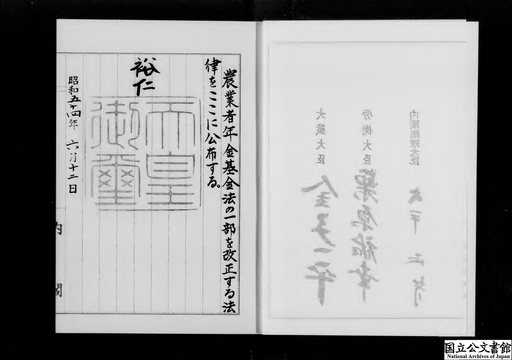 農業者年金基金法の一部を改正する法
律をここに公布する。
裕仁
天皇
御璽
昭和五十四年六月十二日
内閣
内閣総理大臣
大平正芳
労働大臣
栗原祐幸
大蔵大臣
金子一平
国立公文書館
National Archives of Japan